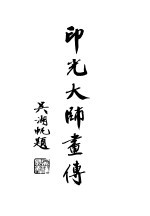 印光大師畫傳
吳湖帆題